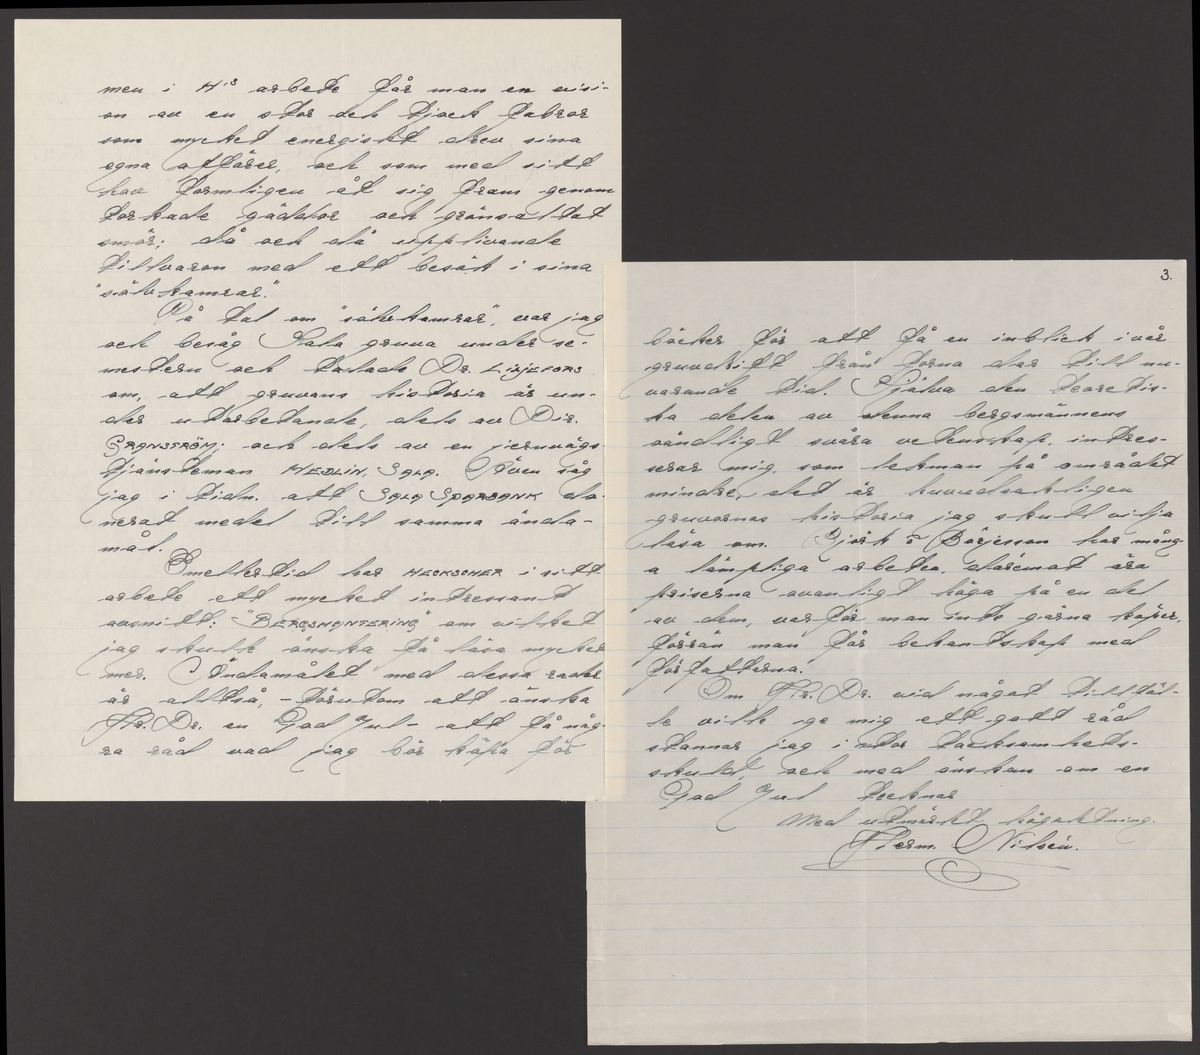 men i H's arbete får man en visi-
on av en stor och tjock farbror
som mycket energiskt drev sina
egna affärer, och som med sitt
hov formligen åt sig fram genom
torkade gäddor och gränsaltat
smör; då och då upplivande
tillvaron med ett besök i sina
"silvkamrar."
På tal om "silvkamrar", var jag
och besåg Sala gruva under se-
mestern och talade Dr. LILJEFORS
om, att gruvans historia är un-
der utarbetande, dels av Dir.
GRANSTRÖM; och dels av en jernvägs-
tjänsteman HEDLIN, SALA. Även såg
jag i tidn. att SALA SPARBANK do-
nerat medel till samma ända-
mål.
Emellertid har HECKSCHER i sitt
arbete ett mycket intressant
avsnitt: "BERGSHANTERING" om vilket
jag skulle önska få läsa mycket
mer. Ändamålet med dessa rader
är alltså, - förutom att önska
Hr. Dr. en God Jul - att få någ-
ra råd vad jag bör köpa för
3.
böcker för att få en inblick i vår
gruvdrift från forna dar till nu-
varande tid. Själva den teoretis-
ka delen av denna bergsmannens
oändligt svåra vetenskap, intres-
serar mig, som lekman på området
mindre, det är huvudsakligen
gruvornas historia jag skull vilja
läsa om. Björk & Börjesson har mång-
a lämpliga arbeten, däremot äro
priserna ovanligt höga på en del
av dem, varför man inte gärna köper,
förrän man får bekantskap med
författarna.
Om Hr. Dr. vid något tillfäl-
le ville ge mig ett gott råd
stannar jag i stor tacksamhets-
skuld, och med önskan om en
God Jul tecknar
Med utmärkt högaktning.
Herm. Nilsén.